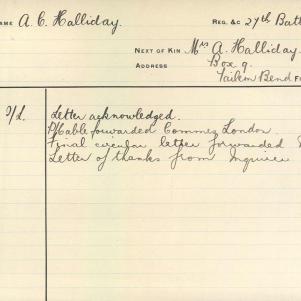 NAME A. C. Halliday. REG. &C 27th Batt
NEXT OF KIN Mrs A. Halliday.
ADDRESS Box 9.
Tailem Bend
Letter acknowledged.
cable forwarded Commez London.
Final circular letter forwarded
Letter of thanks from Inquirer